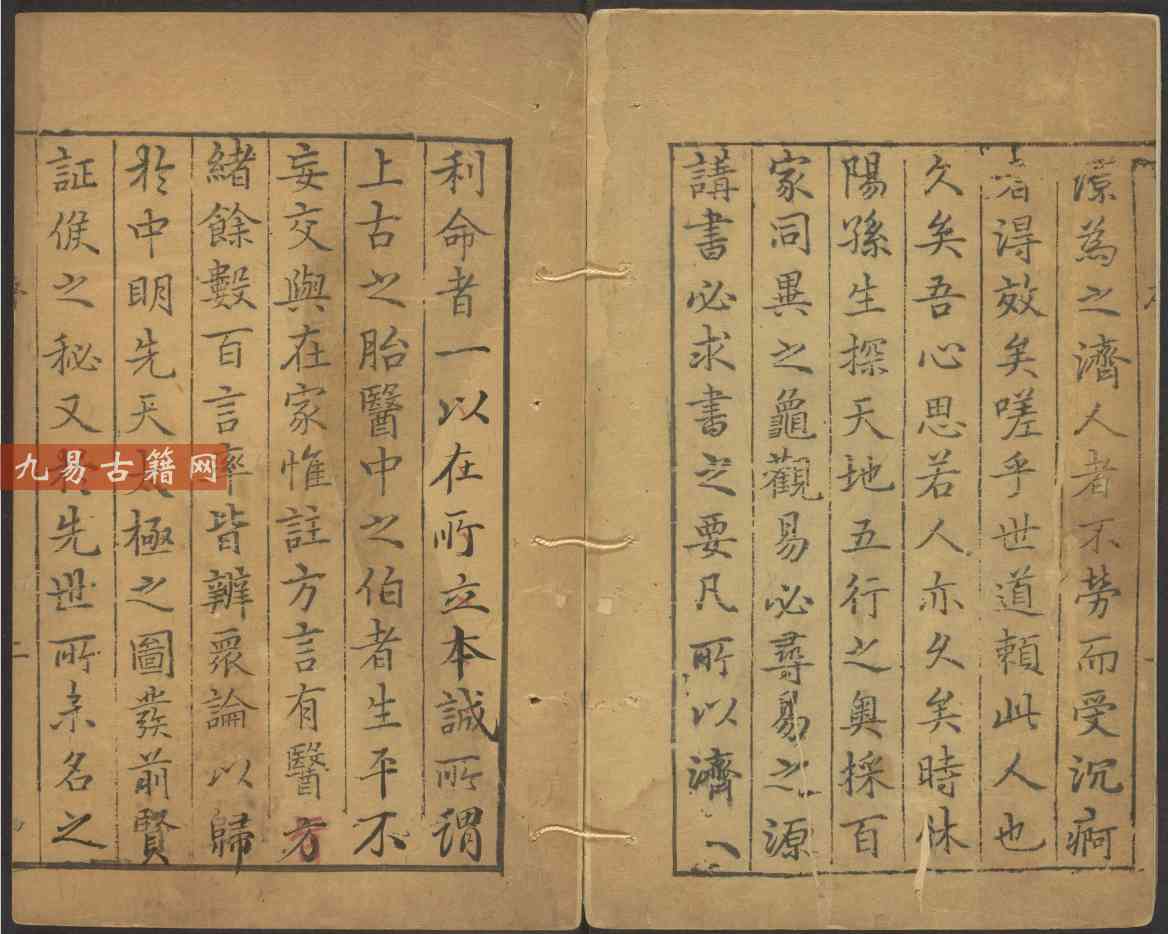 為之濟人者不勞而受沉痾
者得效矣嗟乎世道賴此人也
久矣吾心思若人亦久矣時休
陽孫生探天地五行之奧採百
家同異之龜觀易必尋易之源
講書必求書之要凡所以濟人
利命者一以在所立本誠所謂
上古之胎醫中之伯者生平不
妄交與在家惟註方言有醫方
緒餘數百言率皆辨眾論以歸
於中明先天太極之圖發前賢
証候之秘又於先世所未名之
二
九易古籍网